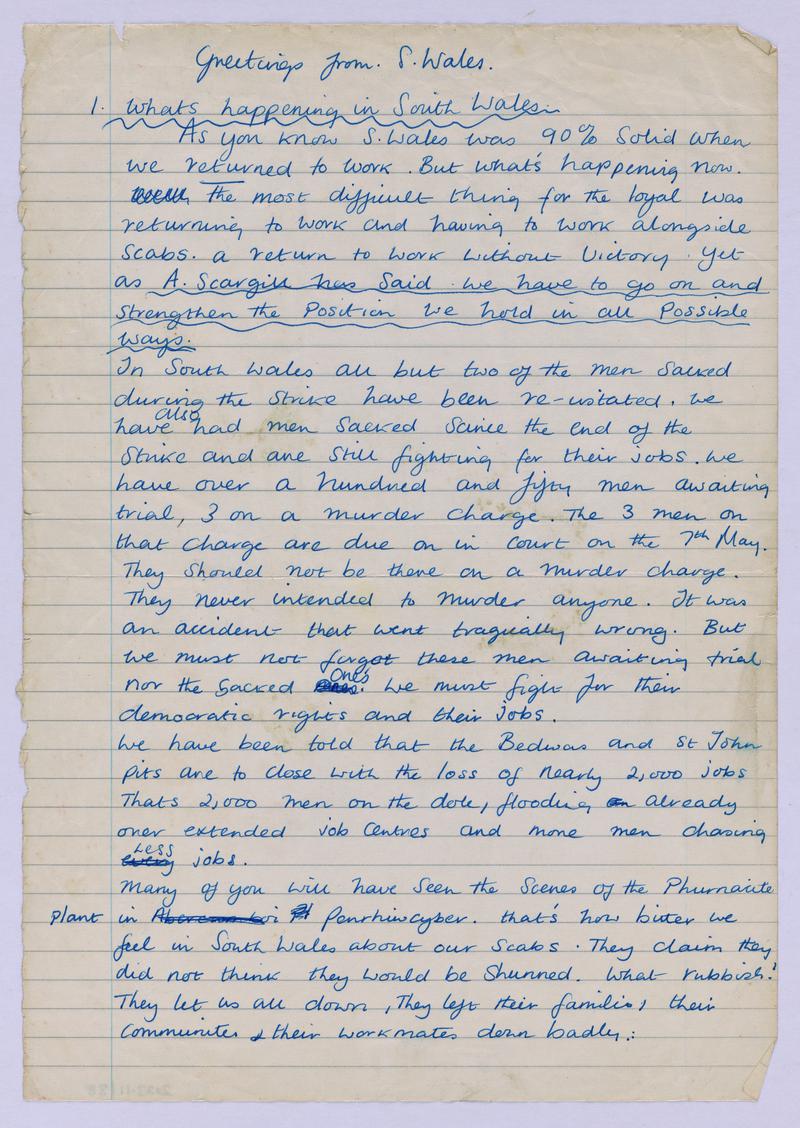 Greetings from. S. Wales.
1. Whats happening in South Wales.
As you know S. Wales was 90% Solid when
we returned to work. But what's happening now.
the most difficult thing for the loyal was
returning to work and having to work alongside
Scabs. a return to work without Victory. Yet
as A. Scargill has Said we have to go on and
Strengthen the Position we hold in all Possible
ways.
In South Wales all but two of the men Sacked
during the Strike have been re-instated. We
have also had men Sacked Scince the end of the
Strike and are Still fighting for their jobs. we
have over a hundred and fifty men awaiting
trial, 3 on a murder charge. The 3 men on
that Charge are due on in court on the 7th May.
They Should not be there on a murder charge.
They never intended to Murder anyone. It was
an accident that went tragically wrong. But
we must not forgot these men awaiting trial
nor the Sacked one's. We must fight for their
democratic rights and their jobs.
We have been told that the Bedwas and St John
pits are to close with the loss of nearly 2,000 jobs
Thats 2,000 men on the dole, flooding already
over extended job Centres and more men chasing
Less jobs.
Many of you will have Seen the Scenes of the Phurnacite
Plant in Penrhiwcyber. that's how bitter we
feel in South Wales about our Scabs. They claim they
did not think they would be Shunned. What rubbish!
They let us all down, They left their families their
Communites & their workmates down badly.